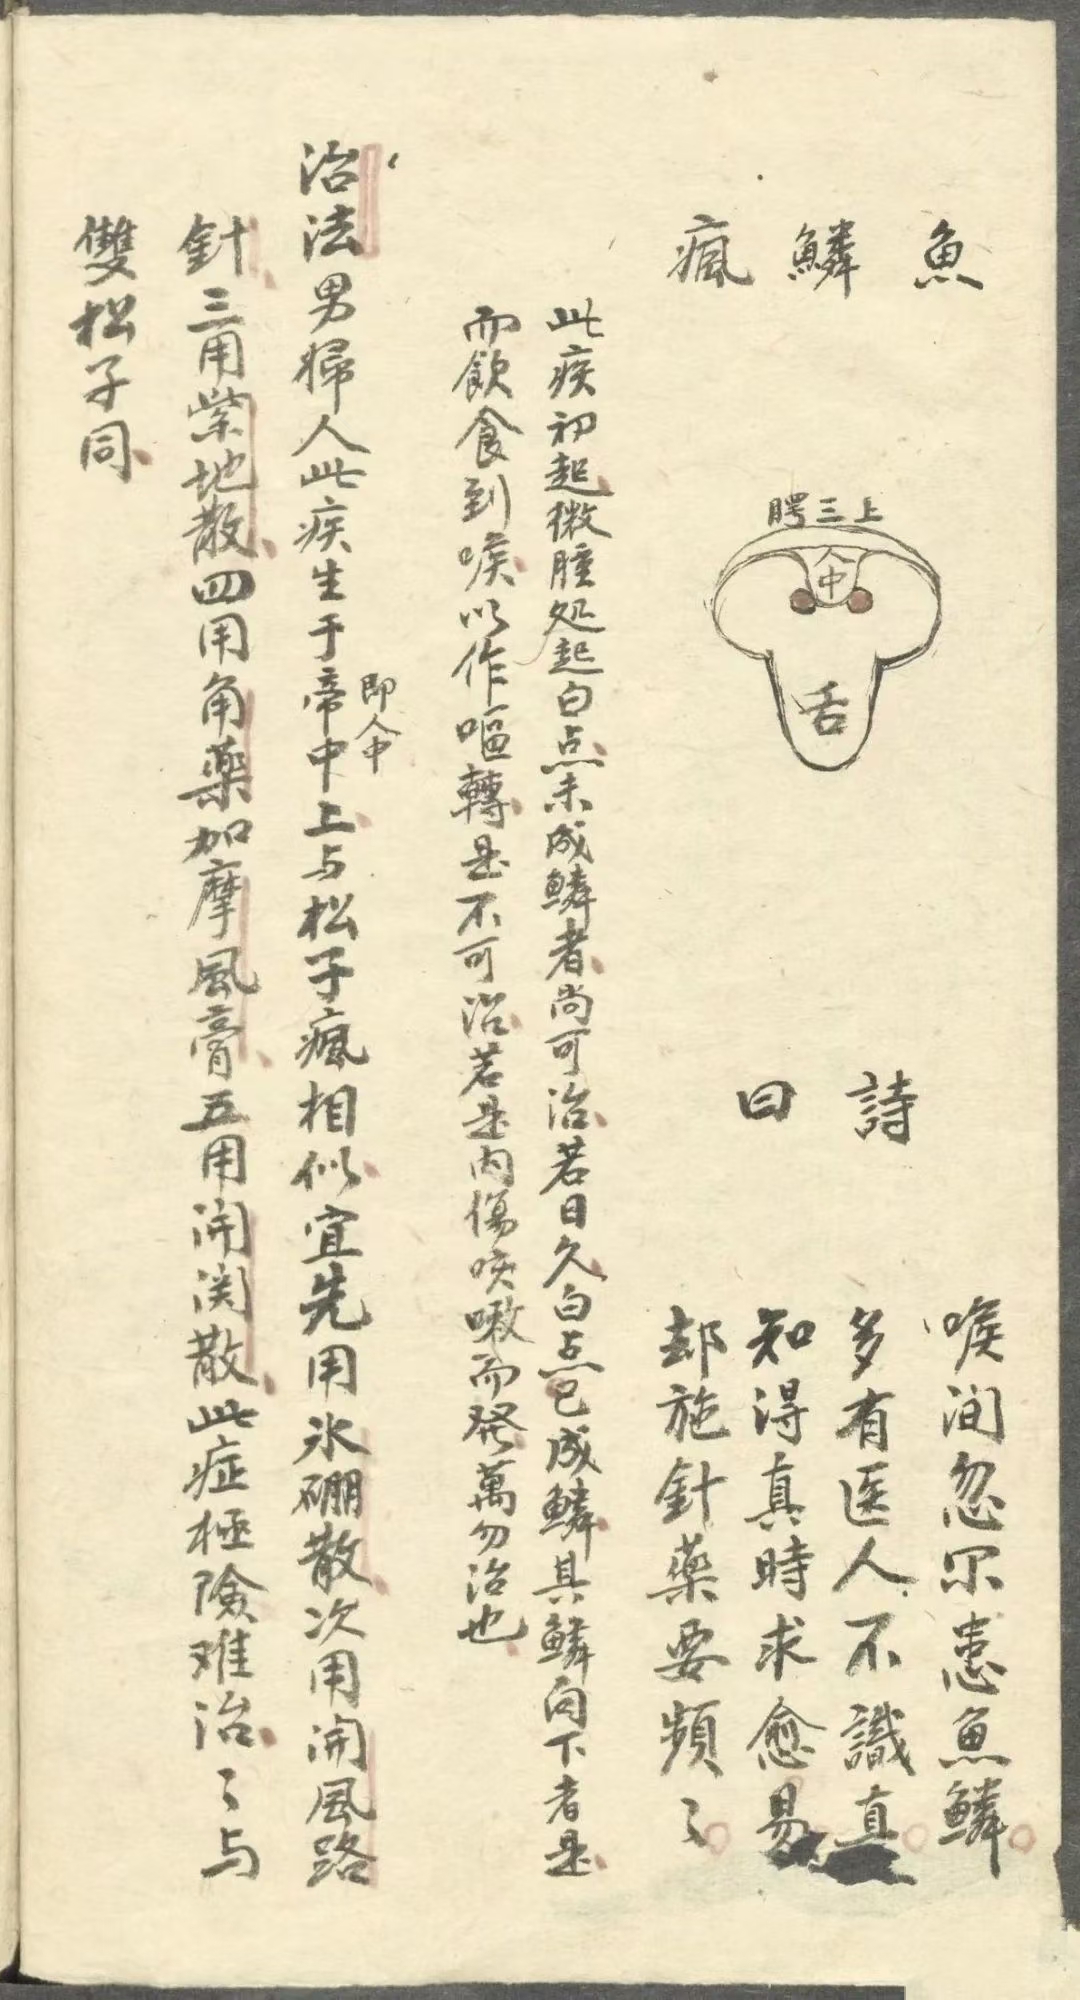 魚鱗瘋
上三腭
人中
舌
詩曰
喉间忽尔患魚鱗
多有医人不識真
知得真時求愈易
却施針藥要頻〻
此疾初起微腫処起白点未成鱗者尚可治若日久白点已成鱗具鱗向下者是
而飲食到喉以作嘔轉是不可治若是内傷咳嗽而発萬勿治也
治法男婦人此疾生于帝中上与松子瘋相似宜先用氷硼散次用開風路
即人中
針三用紫地散四用角藥加摩風膏五用開関散此症極險难治〻与
雙松子同